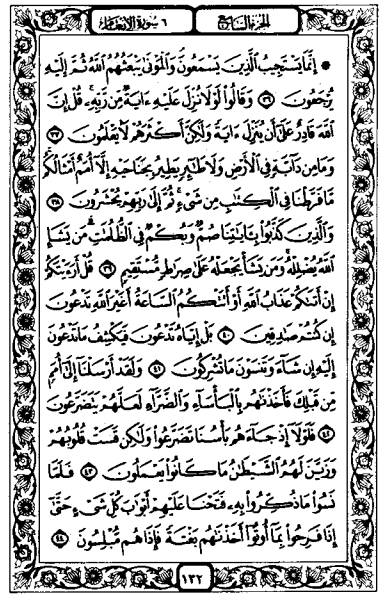 الجزء السابع
٦ سورة الأنعام
* إِنَّمَا يَسْتَجِيبُ الَّذِينَ يَسْمَعُونَ وَالْمَوْتَىٰ يَبْعَثُهُمُ اللَّهُ ثُمَّ إِلَيْهِ
يُرْجَعُونَ ٣٦ وَقَالُوا لَوْلَا نُزِّلَ عَلَيْهِ ءَايَةٌ مِّن رَّبِّهِ قُلْ إِنَّ
اللَّهَ قَادِرٌ عَلَىٰ أَن يُنَزِّلَ ءَايَةً وَلَٰكِنَّ أَكْثَرَهُمْ لَا يَعْلَمُونَ ٣٧
وَمَا مِن دَابَّةٍ فِي الْأَرْضِ وَلَا طَائِرٍ يَطِيرُ بِجَنَاحَيْهِ إِلَّا أُمَمٌ أَمْثَالُكُم
مَّا فَرَّطْنَا فِي الْكِتَٰبِ مِن شَيْءٍ ثُمَّ إِلَىٰ رَبِّهِمْ يُحْشَرُونَ ٣٨
وَالَّذِينَ كَذَّبُوا بِـَٔايَٰتِنَا صُمٌّ وَبُكْمٌ فِي الظُّلُمَٰتِ مَن يَشَإِ
اللَّهُ يُضْلِلْهُ وَمَن يَشَأْ يَجْعَلْهُ عَلَىٰ صِرَٰطٍ مُّسْتَقِيمٍ ٣٩ قُلْ أَرَءَيْتَكُمْ
إِنْ أَتَىٰكُمْ عَذَابُ اللَّهِ أَوْ أَتَتْكُمُ السَّاعَةُ أَغَيْرَ اللَّهِ تَدْعُونَ
إِن كُنتُمْ صَٰدِقِينَ ٤٠ بَلْ إِيَّاهُ تَدْعُونَ فَيَكْشِفُ مَا تَدْعُونَ
إِلَيْهِ إِن شَاءَ وَتَنسَوْنَ مَا تُشْرِكُونَ ٤١ وَلَقَدْ أَرْسَلْنَا إِلَىٰ أُمَمٍ
مِّن قَبْلِكَ فَأَخَذْنَٰهُم بِالْبَأْسَاءِ وَالضَّرَّاءِ لَعَلَّهُمْ يَتَضَرَّعُونَ
٤٢ فَلَوْلَا إِذْ جَاءَهُم بَأْسُنَا تَضَرَّعُوا وَلَٰكِن قَسَتْ قُلُوبُهُمْ
وَزَيَّنَ لَهُمُ الشَّيْطَٰنُ مَا كَانُوا يَعْمَلُونَ ٤٣ فَلَمَّا
نَسُوا مَا ذُكِّرُوا بِهِ فَتَحْنَا عَلَيْهِمْ أَبْوَٰبَ كُلِّ شَيْءٍ حَتَّىٰ
إِذَا فَرِحُوا بِمَا أُوتُوا أَخَذْنَٰهُم بَغْتَةً فَإِذَا هُم مُّبْلِسُونَ ٤٤
١٣٢